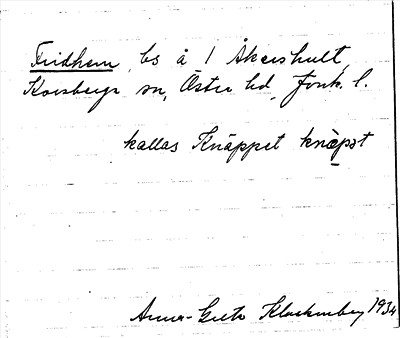 Fridhem, bs å 1 Åkershult,
Korsberga sn, Östra hd, Jönk. l.
kallas Knäppet knæ̀pət
Anna-Greta Klackenberg 1934